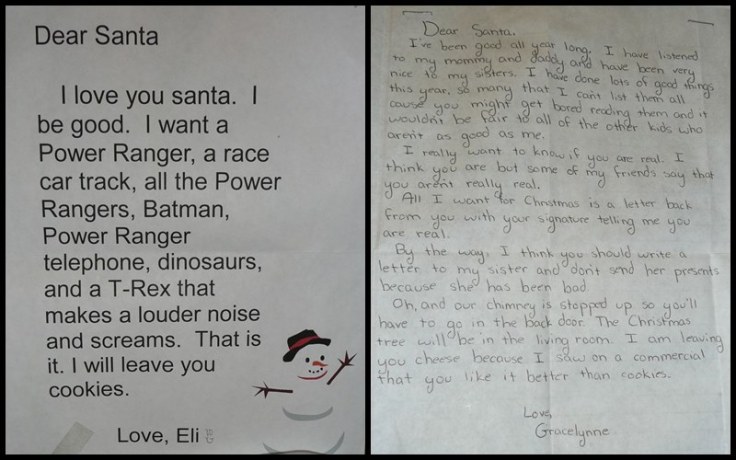 Dear Santa
I love you santa. I
be good. I want a
Power Ranger, a race
car track, all the Power
Rangers, Batman,
Power Ranger
telephone, dinosaurs,
and a T-Rex that
makes a louder noise
and screams. That is
it. I will leave you
cookies.
Love, Eli
Dear Santa,
I've been good all year long. I have listened
to my mommy and daddy and have been very
nice to my sisters. I have done lots of good things
this year, so many that I can't list them all
cause you might get bored reading them and it
wouldn't be fair to all of the other kids who
aren't as good as me.
I really want to know if you are real. I
think you are but some of my friends say that
you aren't really real.
All I want for Christmas is a letter back
from you with your signature telling me you
are real.
By the way, I think you should write a
letter to my sister and don't send her presents
because she has been bad.
Oh, and our chimney is stopped up so you'll
have to go in the back door. The Christmas
tree will be in the living room. I am leaving
you cheese because I saw on a commercial
that you like it better than cookies.
Love,
Gracelynne